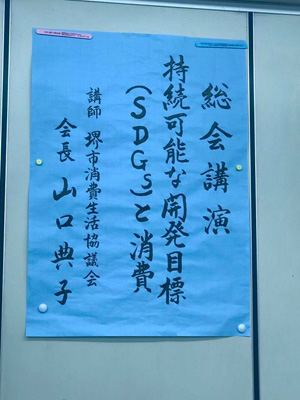 総会講演
持続可能な開発目標
(SDGs)と消費
講師 堺市消費生活協議会
会長 山口典子